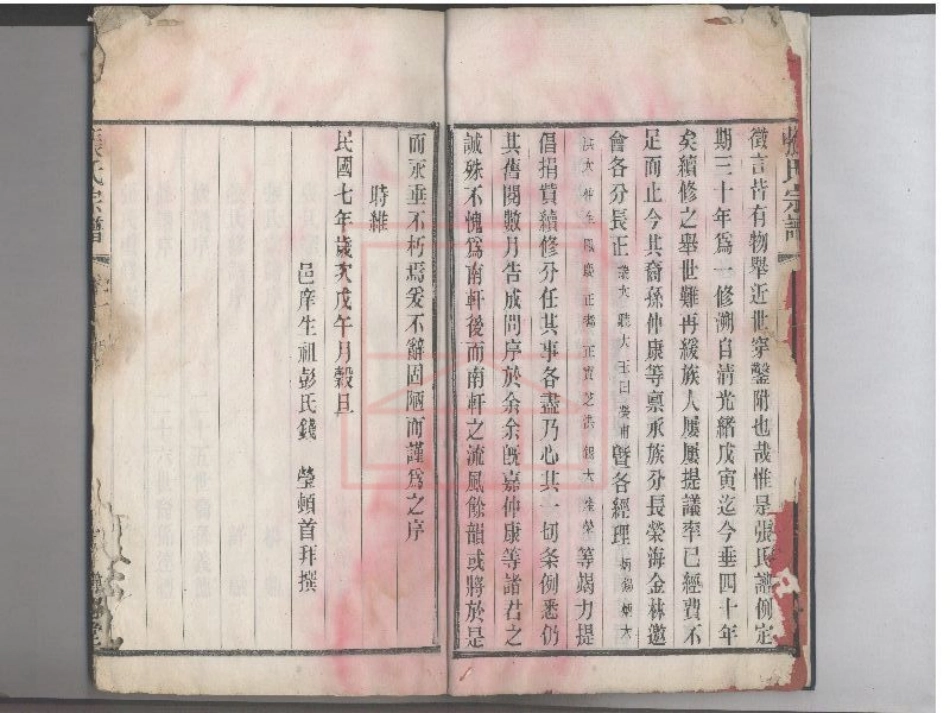 張氏宗譜
徵言皆有物舉近世穿鑿附也哉惟是張氏譜例定
期三十年爲一修溯自清光緒戊寅迄今垂四十年
矣續修之舉世難再緩族人屢屢提議率已經費不
足而止今其裔孫仲康等禀承族分長榮海金林邀
會各分長正 大 聽大 玉田 暨各經理 炳錫 大
洪大 大 正 正寶芝洪 大 等竭力提
倡捐貲續修分任其事各盡乃心其一切条例悉仍
其舊閱數月告成問序於余余旣嘉仲康等諸君之
誠殊不愧爲南軒後而南軒之流風餘韻或將於是
而永垂不朽焉爰不辭固陋而謹爲之序
時維
民國七年歲次戊午月穀旦
邑庠生祖彭氏錢 瑩頓首拜撰
張氏宗譜